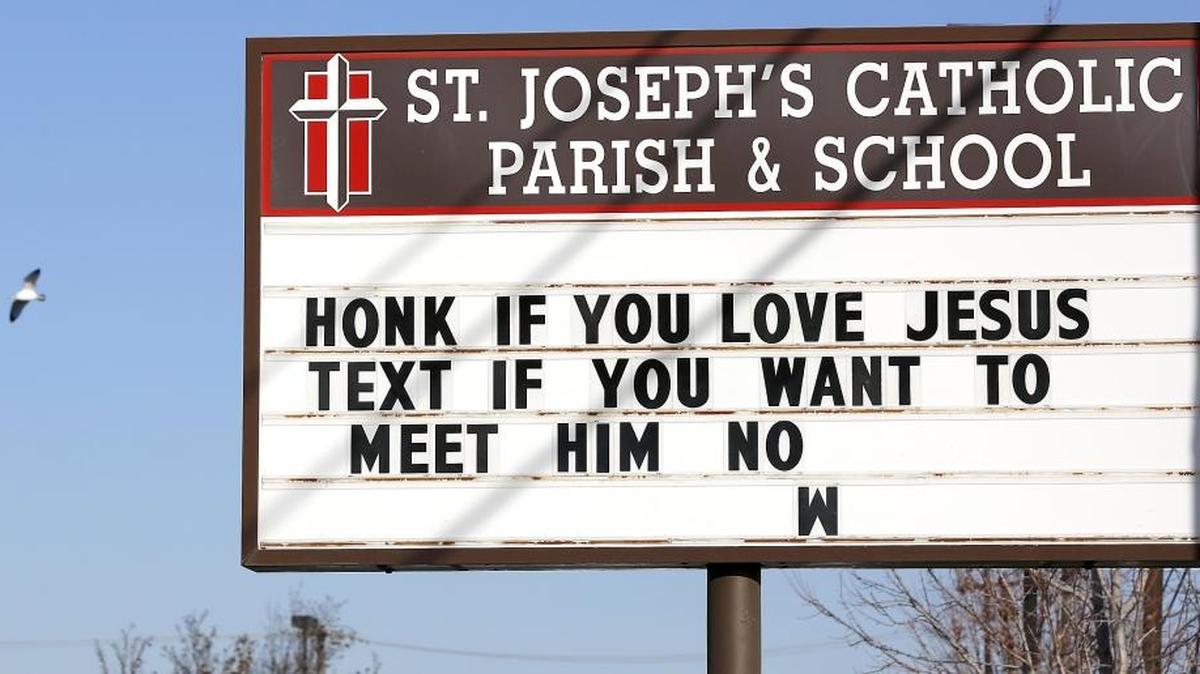 ST. JOSEPH'S CATHOLIC
PARISH & SCHOOL
HONK IF YOU LOVE JESUS
TEXT IF YOU WANT TO
MEET HIM NO
W